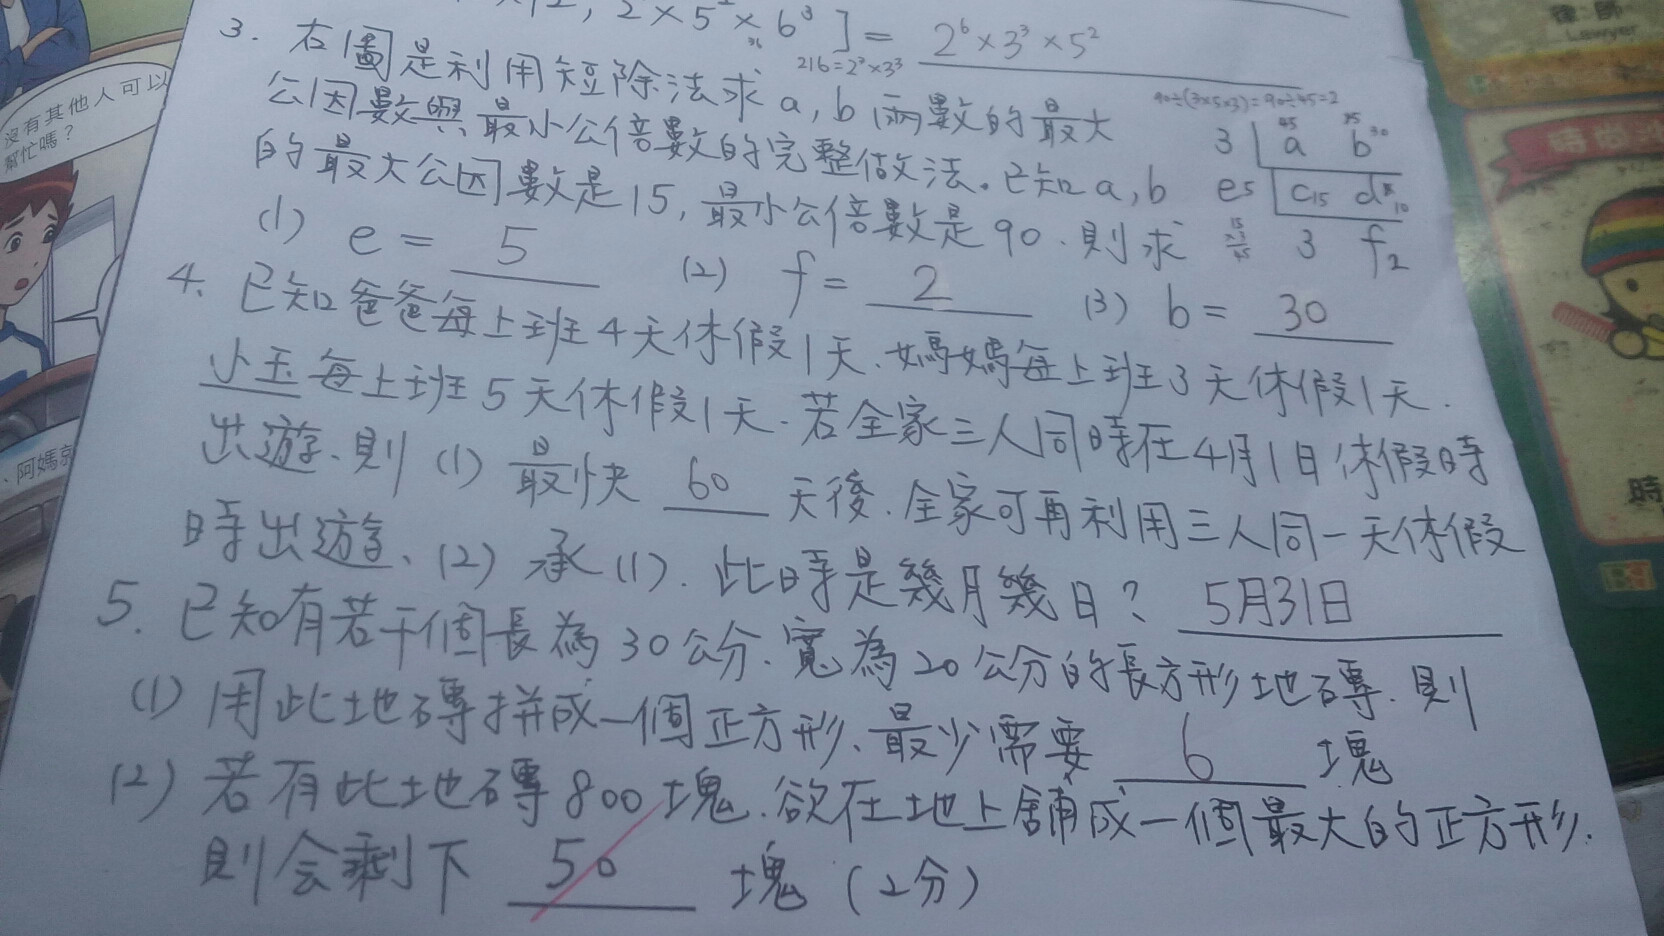 2×5²×6³]= 2⁶×3³×5²
216=2³×3³
3. 右圖是利用短除法求a,b兩數的最大
公因數與最小公倍數的完整做法。已知a,b
的最大公因數是15,最小公倍數是90.則求
90÷(3×5×3)=90÷45=2
3 a 45 b 30
e5 c15 d 10
3 f2
(1) e= 5 (2) f= 2 (3) b= 30
4. 已知爸爸每上班4天休假1天.媽媽每上班3天休假1天.
小玉每上班5天休假1天.若全家三人同時在4月1日休假時
出遊.則(1)最快 60 天後.全家可再利用三人同一天休假
時出遊、(2)承(1).此時是幾月幾日? 5月31日
5. 已知有若干個長為30公分.寬為20公分的長方形地磚.則
(1)用此地磚拼成一個正方形、最少需要 6 塊
(2)若有此地磚800塊.欲在地上舖成一個最大的正方形.
則会剩下 50 塊(2分)
沒有其他人可以
幫忙嗎?
、阿媽
律師
Lawyer
時尚
時